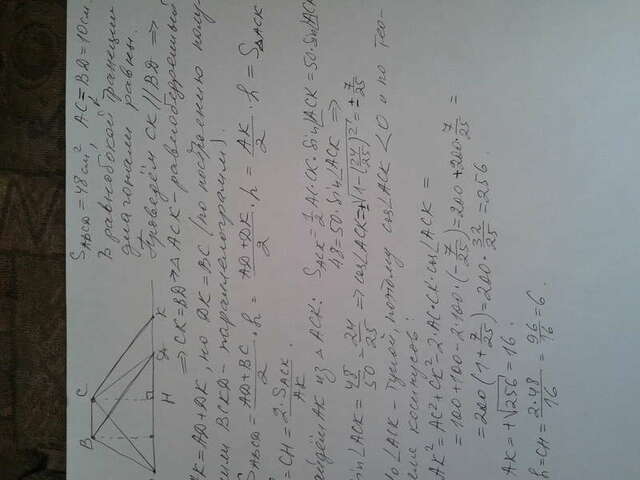 B C
H D K
S_ABCD = 48 см², AC = BD = 10 см.
В равнобокой трапеции
диагонали равны.
Проведём CK // BD ⇒
⇒ CK = BD ⇒ △ ACK - равнобедренный
K = AD + DK, но DK = BC (по построению полу-
или BCKD - параллелограмм).
S_ABCD = (AD + BC)/2 · h = (AD + DK)/2 · h = AK/2 · h = S_△ACK
= CH = 2·S_ACK / AK.
айдём AK из △ ACK: S_ACK = 1/2 AC·CK·sin∠ACK = 50·sin∠ACK
48 = 50·sin∠ACK ⇒
sin∠ACK = 48/50 = 24/25 ⇒ cos∠ACK = ±√(1-(24/25)²) = ± 7/25
∠ACK - тупой, поэтому cos∠ACK < 0 и по тео-
реме косинусов:
AK² = AC² + CK² - 2·AC·CK·cos∠ACK =
= 100 + 100 - 2·100·(-7/25) = 200 + 200·7/25 =
= 200(1 + 7/25) = 200 · 32/25 = 256.
AK = +√256 = 16.
h = CH = 2·48/16 = 96/16 = 6.